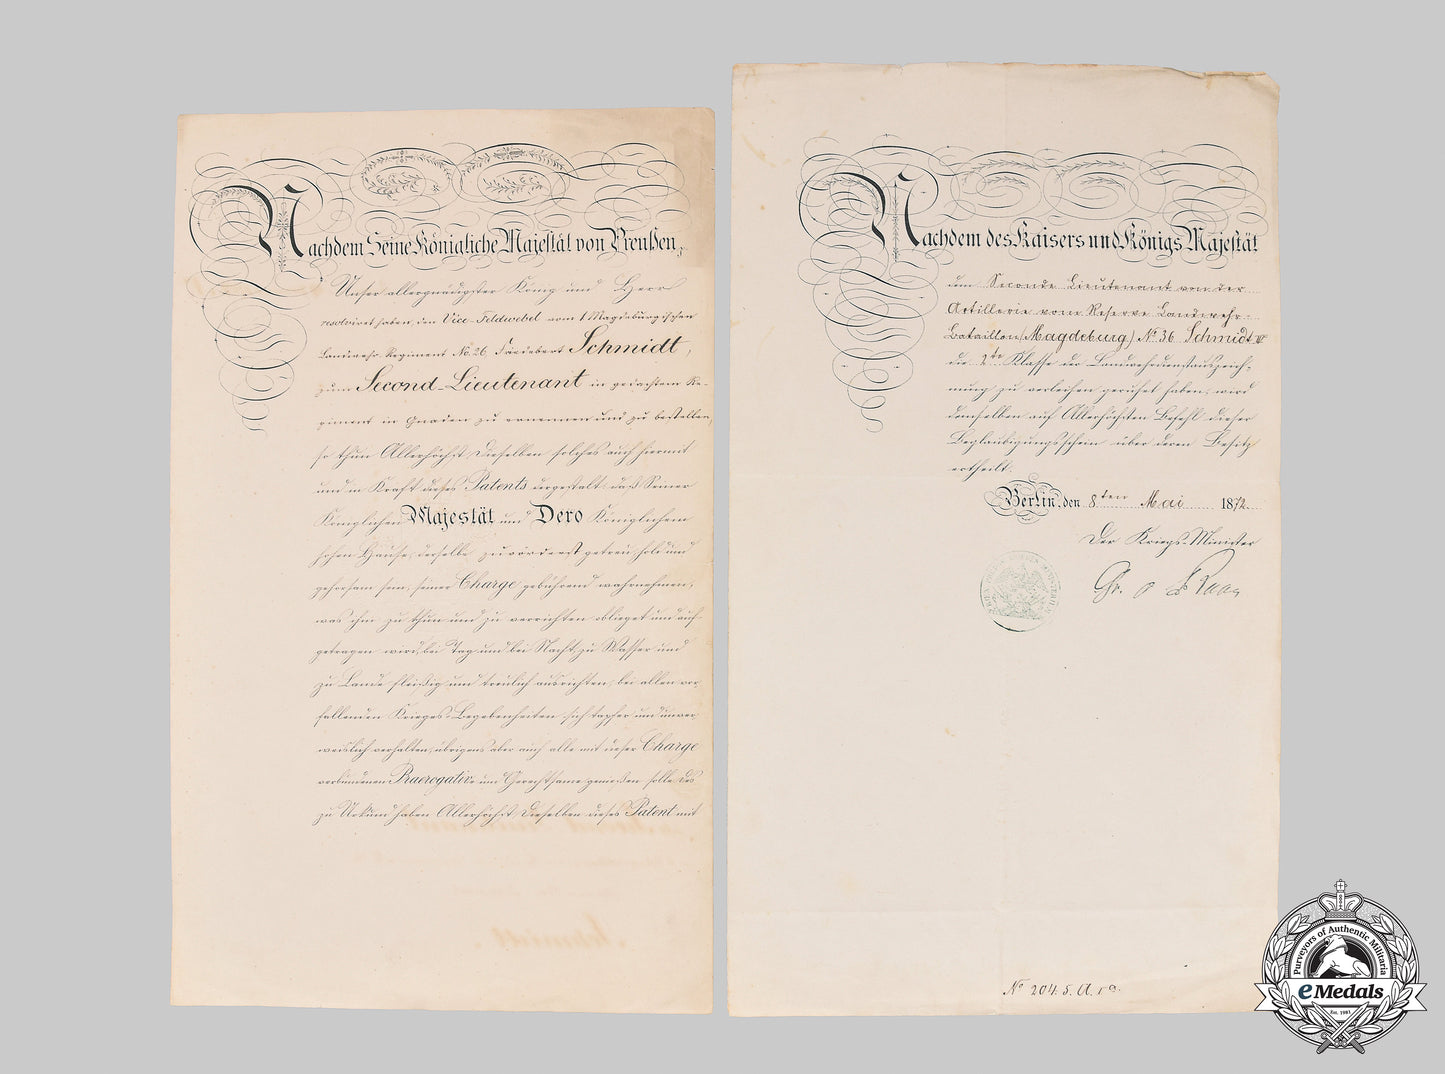 Nachdem Seine Königliche Majestät von Preußen,
Unser allergnädigster König und Herr
resolviret haben, den Vice-Feldwebel vom 1. Magdeburgischen
Landwehr-Regiment No. 26, Fredebert Schmidt,
zum Second-Lieutenant in gedachtem Re-
giment in Gnaden zu ernennen und zu bestellen,
so thun Allerhöchst Dieselben solches auch hiermit
und in Kraft dieses Patents dergestalt: daß Seiner
Königlichen Majestät und Dero Königlichem
hohen Hause, derselbe zuvörderst getreu, hold und
gehorsam sein, seiner Charge gebührend wahrnehmen,
was ihm zu thun und zu verrichten oblieget und auf-
getragen wird, bei Tag und bei Nacht, zu Wasser und
zu Lande fleißig und treulich ausrichten, bei allen vor-
fallenden Krieges-Begebenheiten sich tapfer und unver-
weislich verhalten, übrigens aber auch alle mit dieser Charge
verbundenen Praerogative und Gerechtsame genießen solle. Deß
zu Urkund haben Allerhöchst Dieselben dieses Patent mit
Nachdem des Kaisers und Königs Majestät
dem Seconde Lieutenant von der
Artillerie vom Reserve Landwehr-
Bataillon (Magdeburg) No. 36 Schmidt
die 2te Klasse der Landwehrdienstauszeich-
nung zu verleihen geruhet haben, wird
demselben auf Allerhöchsten Befehl dieser
Beglaubigungsschein über deren Besitz
ertheilt.
Berlin, den 8ten Mai 1872.
Der Kriegs-Minister
Gr. v Roon
No 204. 5. A. 1 a.
Purveyors of Authentic Militaria
eMedals
Est. 1981